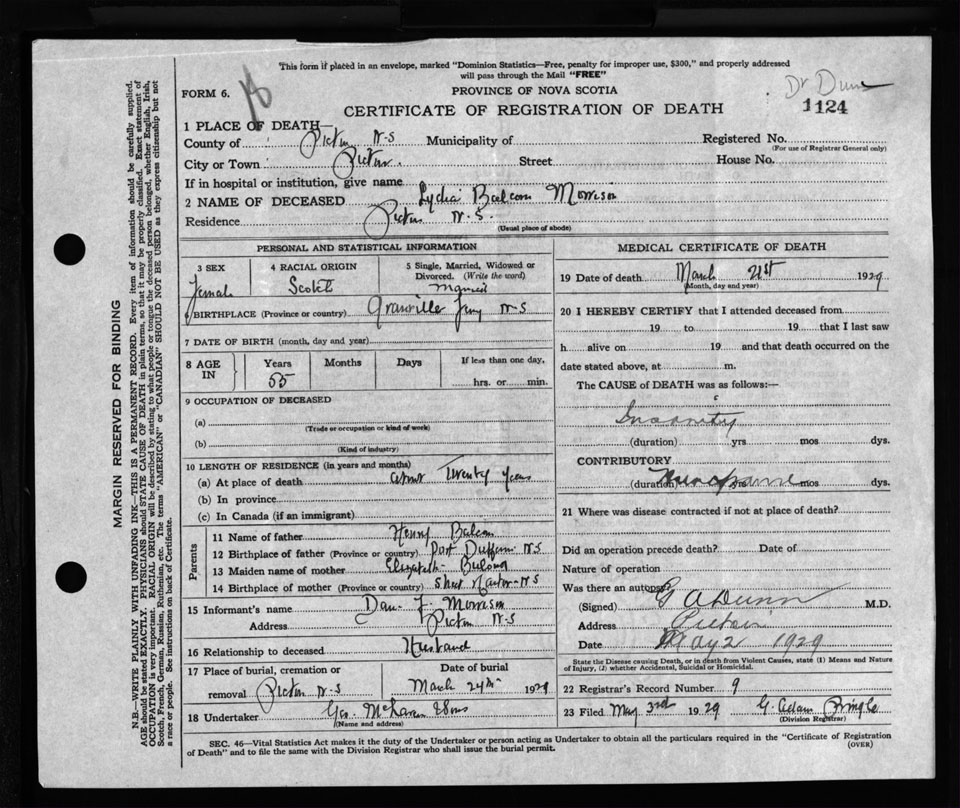 This form if placed in an envelope, marked "Dominion Statistics—Free, penalty for improper use, $300," and properly addressed
will pass through the Mail "FREE"
Dr Dunn
FORM 6.
PROVINCE OF NOVA SCOTIA
1124
CERTIFICATE OF REGISTRATION OF DEATH
1 PLACE OF DEATH—
County of Pictou N-S Municipality of Registered No.
(For use of Registrar General only)
City or Town Pictou. Street House No.
If in hospital or institution, give name
2 NAME OF DECEASED Lydia Balcom Morrison
Residence Pictou N.S.
(Usual place of abode)
PERSONAL AND STATISTICAL INFORMATION
3 SEX 4 RACIAL ORIGIN 5 Single, Married, Widowed or
Divorced. (Write the word)
Female Scotch Married
BIRTHPLACE (Province or country) Granville Ferry N-S
7 DATE OF BIRTH (month, day and year)
8 AGE IN Years Months Days If less than one day,
55 hrs. or min.
9 OCCUPATION OF DECEASED
(a)
(Trade or occupation or kind of work)
(b)
(Kind of industry)
10 LENGTH OF RESIDENCE (in years and months)
(a) At place of death about Twenty Years
(b) In province
(c) In Canada (if an immigrant)
Parents
11 Name of father Henry Balcom
12 Birthplace of father (Province or country) Port Dufferin N-S
13 Maiden name of mother Elizabeth
14 Birthplace of mother (Province or country) Sheet Harbor-N-S
15 Informant's name Dan. F. Morrison
Address Pictou N-S
16 Relationship to deceased Husband
17 Place of burial, cremation or Date of burial
removal Pictou N-S March 24th 1929
18 Undertaker Geo. McLaren & Sons
(Name and address)
MEDICAL CERTIFICATE OF DEATH
19 Date of death March 21st 1929
(Month, day and year)
20 I HEREBY CERTIFY that I attended deceased from
19 to 19 that I last saw
h alive on 19 and that death occurred on the
date stated above, at m.
The CAUSE of DEATH was as follows:—
Insanity
(duration) yrs mos dys.
CONTRIBUTORY
(duration) yrs mos dys.
21 Where was disease contracted if not at place of death?
Did an operation precede death? Date of
Nature of operation
Was there an autopsy?
(Signed) G A Dunn M.D.
Address Pictou
Date May 2 1929
State the Disease causing Death, or in death from Violent Causes, state (1) Means and Nature
of Injury, (2) whether Accidental, Suicidal or Homicidal.
22 Registrar's Record Number 9
23 Filed May 3rd 1929 G. Adam Pringle
(Division Registrar)
SEC. 46—Vital Statistics Act makes it the duty of the Undertaker or person acting as Undertaker to obtain all the particulars required in the "Certificate of Registration
of Death" and to file the same with the Division Registrar who shall issue the burial permit. (OVER)
MARGIN RESERVED FOR BINDING
N.B.—WRITE PLAINLY WITH UNFADING INK—THIS IS A PERMANENT RECORD. Every item of information should be carefully supplied.
AGE should be stated EXACTLY. PHYSICIANS should STATE CAUSE OF DEATH in plain terms, so that it may be properly classified. Exact statement of
OCCUPATION is very important. RACIAL ORIGIN will be described by stating to what people or tongue the deceased person belonged, whether English, Irish,
Scotch, French, German, Russian, Ruthenian, etc. The terms "AMERICAN" or "CANADIAN" SHOULD NOT BE USED as they express citizenship but not
a race or people. See instructions on back of Certificate.